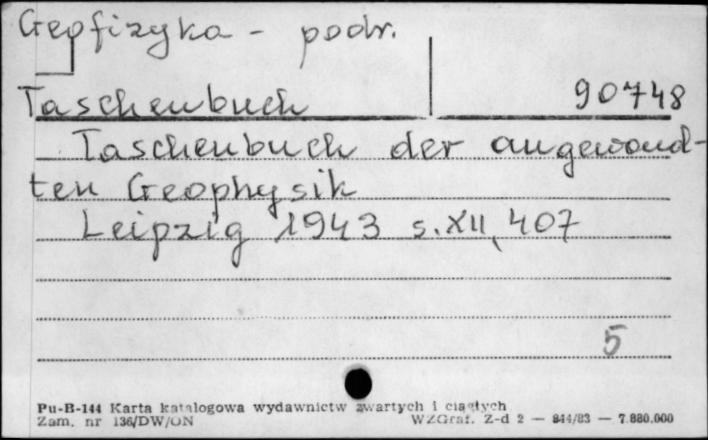 Geofizyka - podr.
Taschenbuch 90748
Taschenbuch der angewand-
ten Geophysik
Leipzig 1943 s. XII, 407
5
Pu-B-144 Karta katalogowa wydawnictw zwartych i ciągłych
Zam. nr 136/DW/ON WZGraf. Z-d 2 — 844/83 — 7.880.000